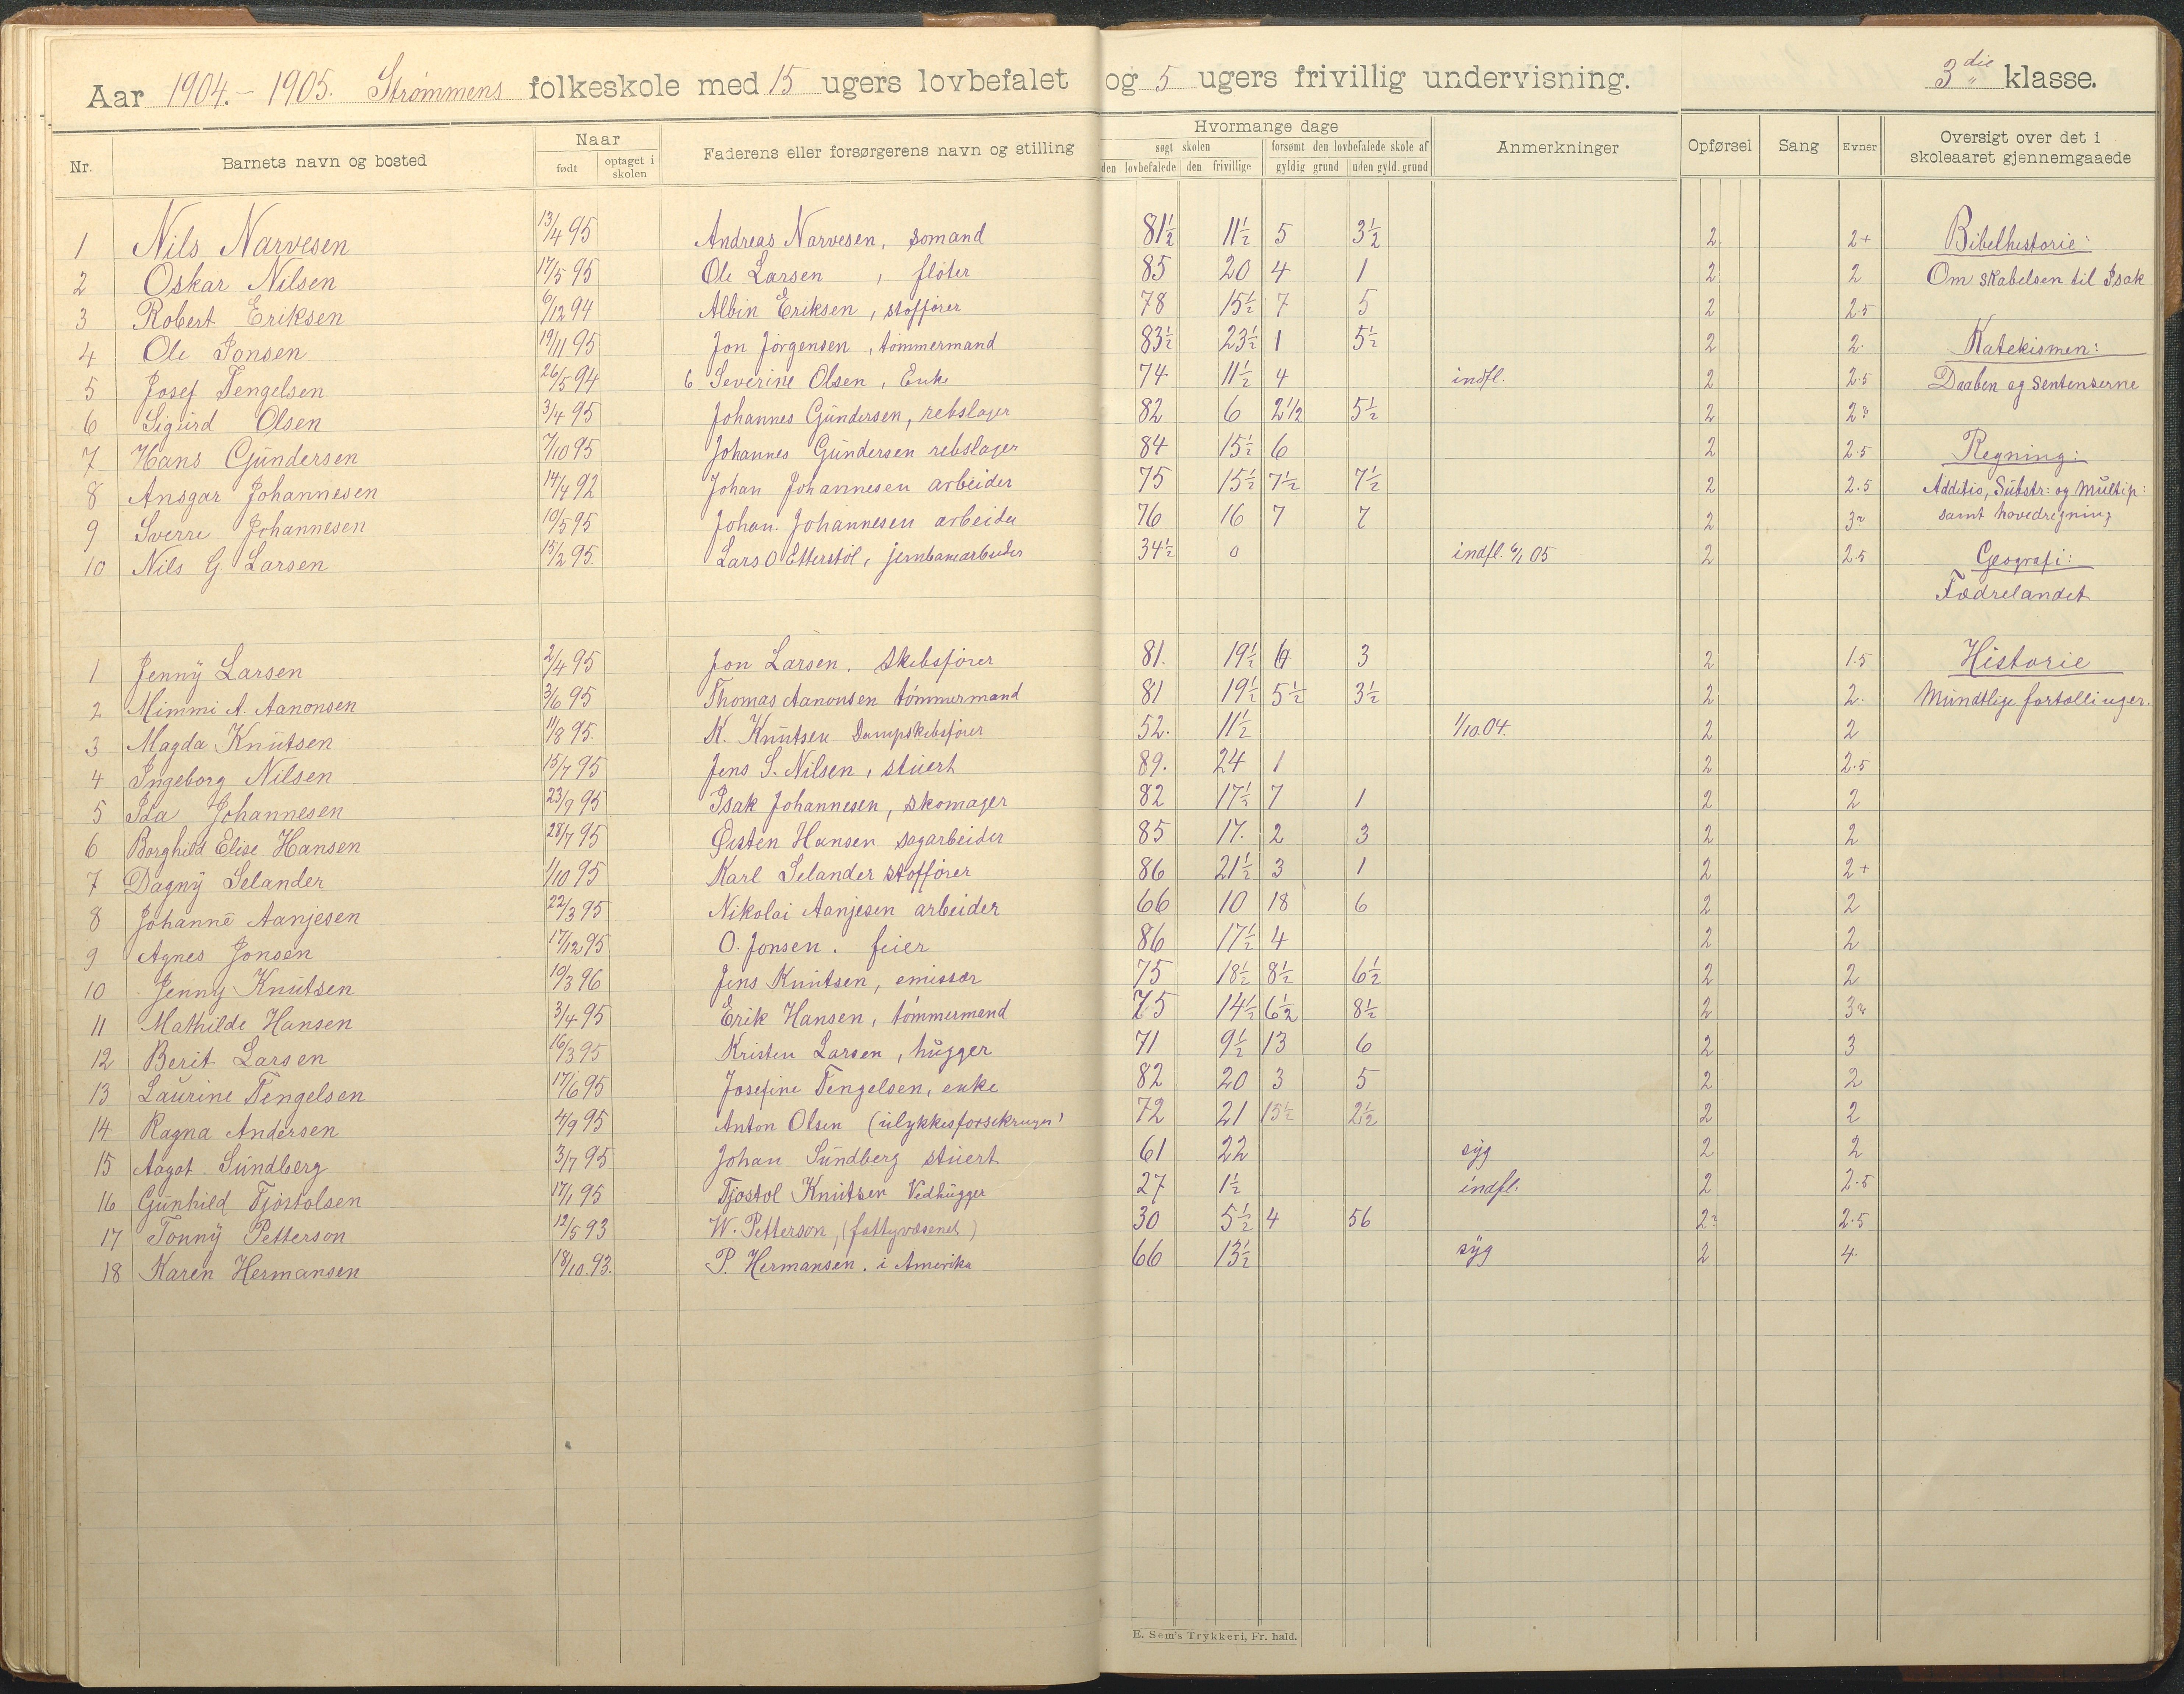 Aar 1904.-1905. Strømmens folkeskole med 15 ugers lovbefalet og 5 ugers frivillig undervisning. 3die klasse.
Nr. Barnets navn og bosted Naar født optaget i skolen Faderens eller forsørgerens navn og stilling Hvormange dage søgt skolen den lovbefalede den frivillige forsømt den lovbefalede skole af gyldig grund uden gyld. grund Anmerkninger Opførsel Sang Evner Oversigt over det i skoleaaret gjennemgaaede
1 Nils Narvesen 13/4 95 Andreas Narvesen, sømand 81½ 11½ 5 3½ 2 2+ Bibelhistorie:
2 Oskar Nilsen 17/5 95 Ole Larsen, fløter 85 20 4 1 2 2 Om skabelsen til Isak
3 Robert Eriksen 6/12 94 Albin Eriksen, støffører 78 15½ 7 5 2 2.5
4 Ole Jonsen 19/11 95 Jon Jørgensen, tømmermand 83½ 23½ 1 5½ 2 2. Katekismen:
5 Josef Tengelsen 26/5 94 6 Severine Olsen, Enke 74 11½ 4 indfl. 2 2.5 Daaben og Sentenserne
6 Sigurd Olsen 3/4 95 Johannes Gundersen, rebslager 82 6 2½ 5½ 2 2?
7 Hans Gundersen 7/10 95 Johannes Gundersen rebslager 84 15½ 6 2 2.5 Regning:
8 Ansgar Johannesen 14/4 92 Johan Johannesen arbeider 75 15½ 7½ 7½ 2 2.5 Additio, Substr: og Multip:
9 Sverre Johannesen 10/5 95 Johan. Johannesen arbeider 76 16 7 7 2 3? samt hovedregning
10 Nils G. Larsen 15/2 95. Lars O Etterstøl, jernbanearbeider 34½ 0 indfl. 6/1 05 2 2.5 Geografi:
Fædrelandet
1 Jenny Larsen 2/4 95 Jon Larsen. Skibsfører 81. 19½ 6 3 2 1.5 Historie
2 Mimmi A. Aanonsen 3/6 95 Thomas Aanonsen tømmermand 81 19½ 5½ 3½ 2 2. Mundtlige fortællinger.
3 Magda Knutsen 11/8 95. K. Knutsen Dampskibsfører 52. 11½ 1/10.04. 2 2
4 Ingeborg Nilsen 15/7 95 Jens S. Nilsen, stuert 89. 24 1 2 2.5
5 Ida Johannesen 23/9 95 Isak Johannesen, skomager 82 17½ 7 1 2 2
6 Borghild Elise Hansen 28/7 95 Øisten Hansen sagarbeider 85 17. 2 3 2 2
7 Dagny Selander 1/10 95 Karl Selander støffører 86 21½ 3 1 2 2+
8 Johanne Aanjesen 22/3 95 Nikolai Aanjesen arbeider 66 10 18 6 2 2
9 Agnes Jonsen 17/12 95 O. Jonsen. feier 86 17½ 4 2 2
10 Jenny Knutsen 10/3 96 Jens Knutsen, emissær 75 18½ 8½ 6½ 2 2
11 Mathilde Hansen 3/4 95 Erik Hansen, tømmermand 75 14½ 6½ 8½ 2 3?
12 Berit Larsen 16/3 95 Kristen Larsen, hugger 71 9½ 13 6 2 3
13 Laurine Tengelsen 17/6 95 Josefine Tengelsen, enke 82 20 3 5 2 2
14 Ragna Andersen 4/9 95 Anton Olsen 72 21 15½ 2½ 2 2
15 Aagot Sundberg 3/7 95 Johan Sundberg stuert 61 22 syg 2 2
16 Gunhild Tjøstolsen 17/1 95 Tjøstol Knutsen Vedhugger 27 1½ indfl. 2 2.5
17 Tonny Petterson 12/5 93 W. Petterson, (fattigvæsenet) 30 5½ 4 56 2? 2.5
18 Karen Hermansen 18/10.93. P. Hermansen. i Amerika 66 13½ syg 2 4.
E. Sem's Trykkeri, Fr. hald.